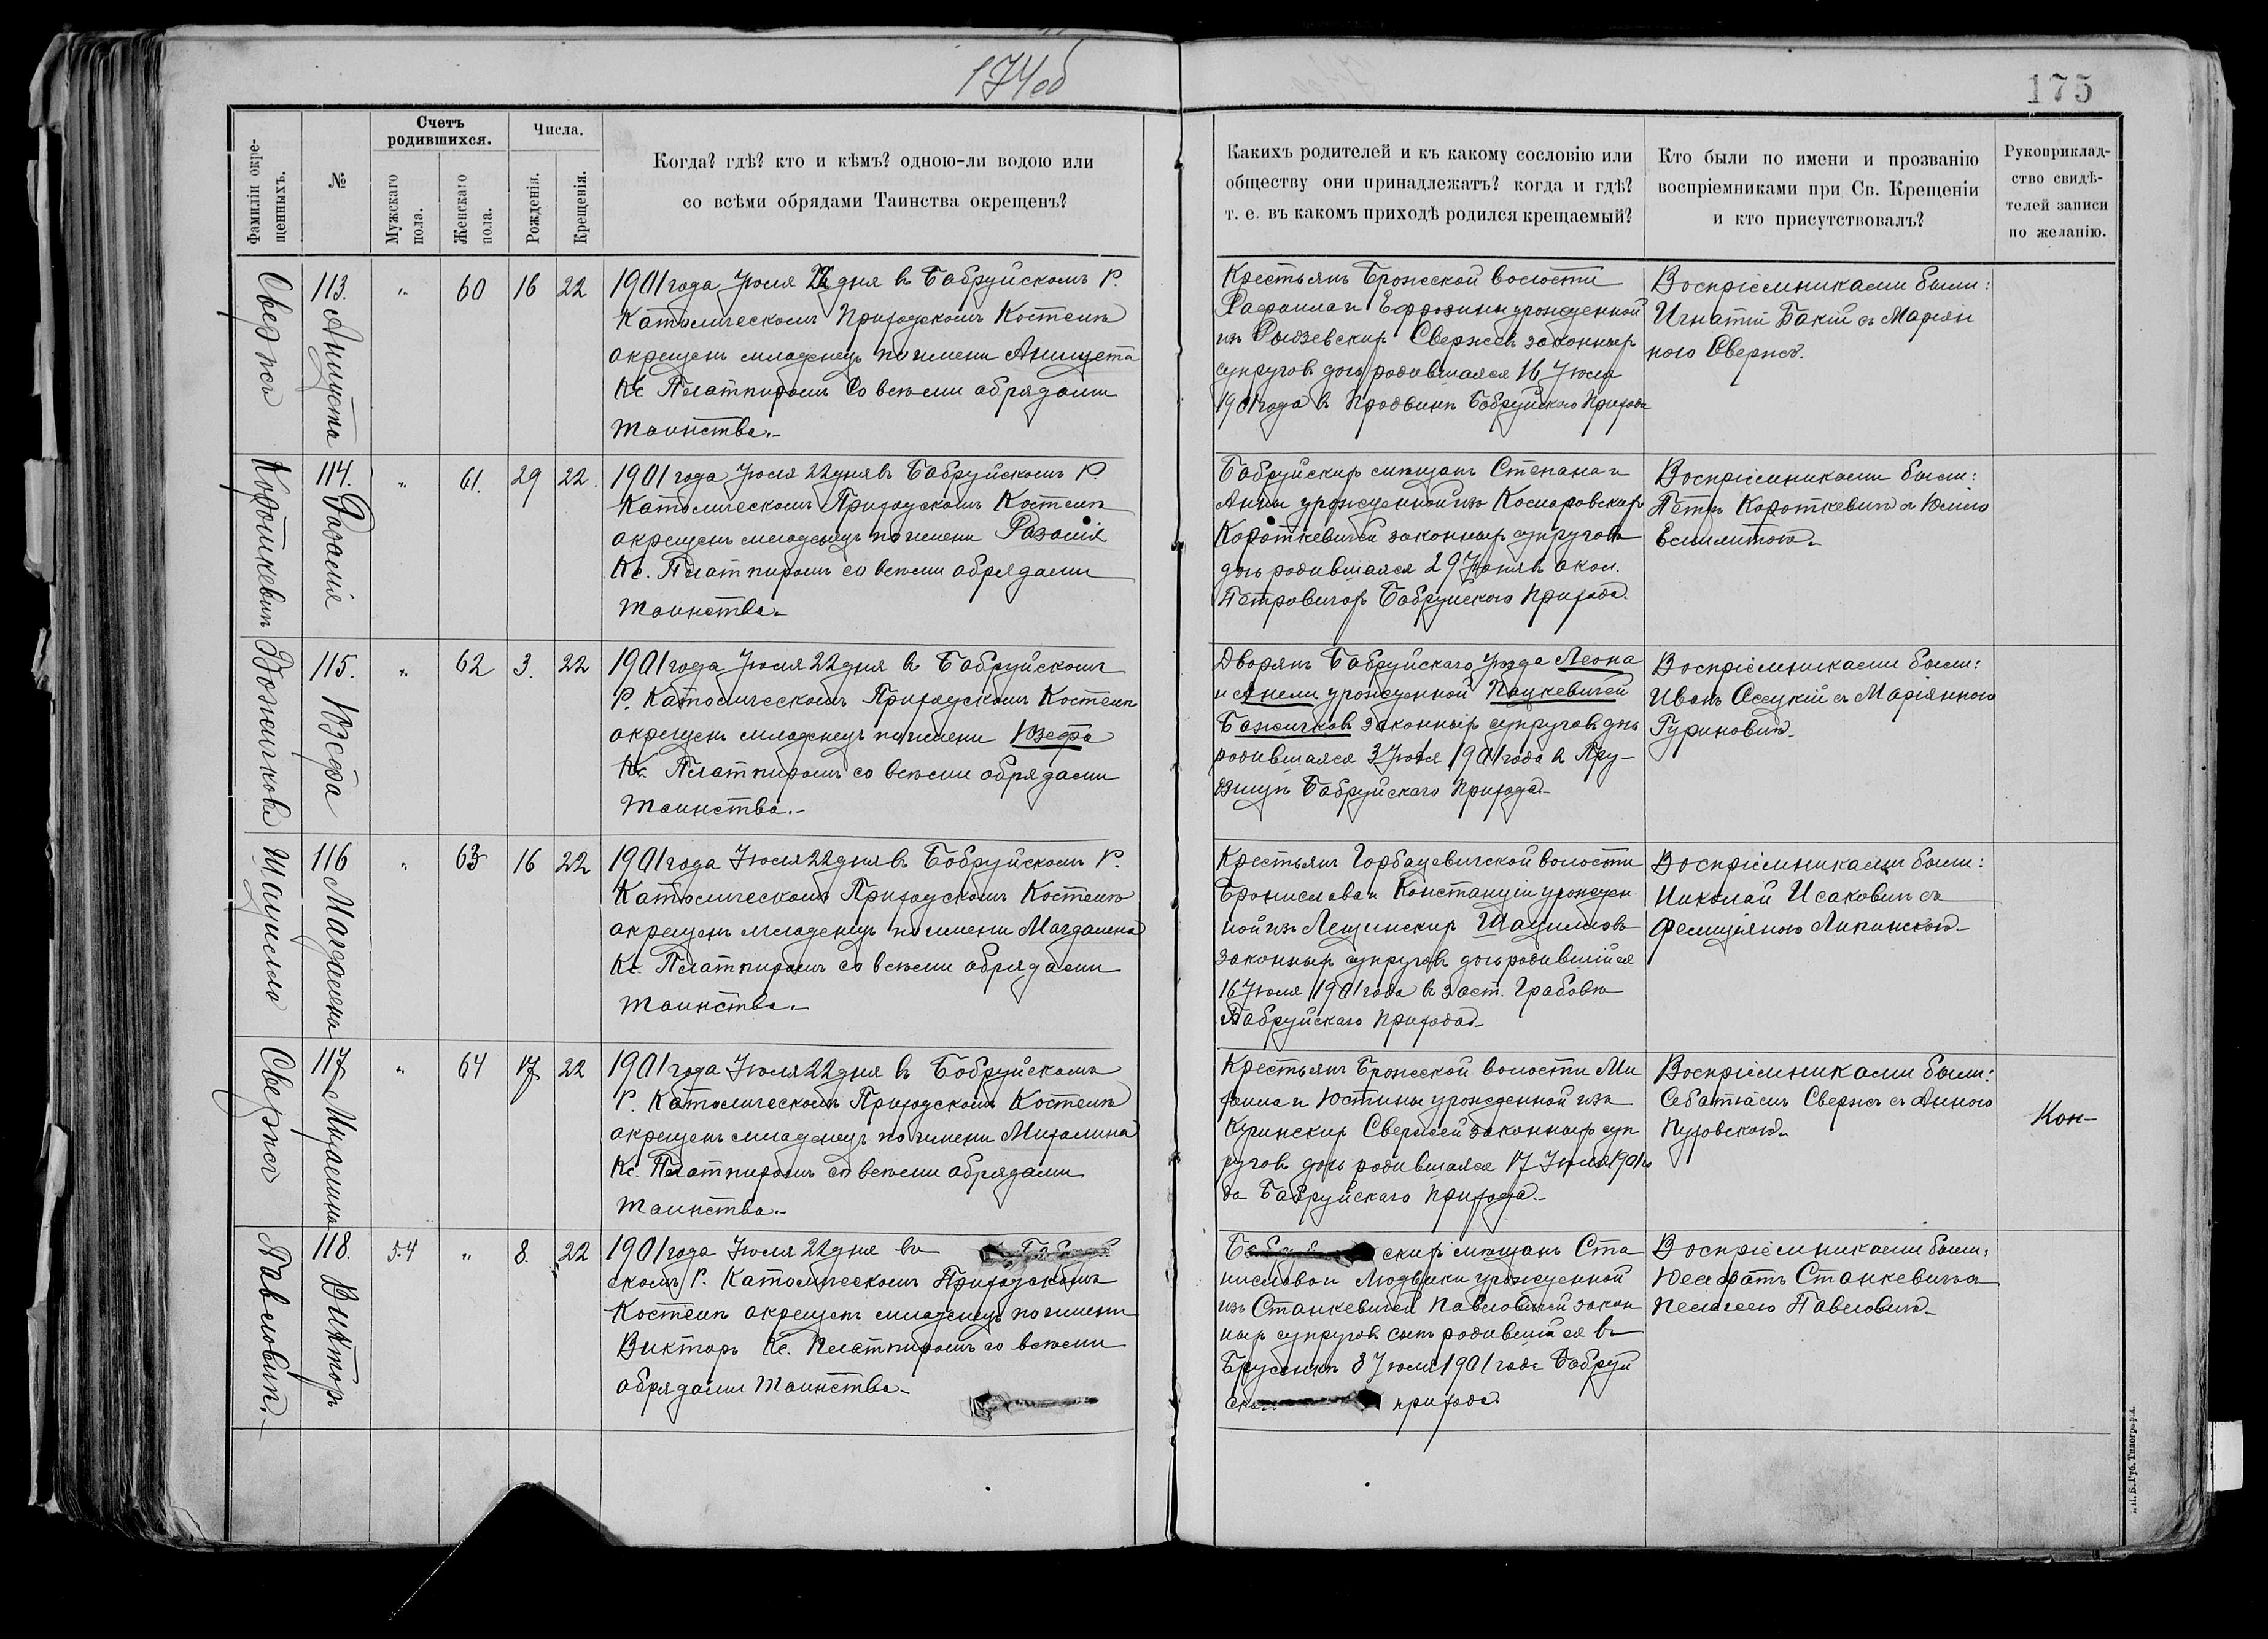 174об
175
Фамиліи окре-
щенныхъ.
№
Счетъ
родившихся.
Мужскаго
пола.
Женскаго
пола.
Числа.
Рожденія.
Крещенія.
Когда? гдѣ? кто и кѣмъ? одною-ли водою или
со всѣми обрядами Таинства окрещенъ?
Каких­ъ родителей и къ какому сословію или
обществу они принадлежатъ? когда и гдѣ?
т. е. въ какомъ приходѣ родился крещаемый?
Кто были по имени и прозванію
воспріемниками при Св. Крещеніи
и кто присутствовалъ?
Рукоприклад-
ство свидѣ-
телей записи
по желанію.
113. Аницета
" 60 16 22
1901 года Іюля 22 дня въ Бобруйскомъ Р.
Католическомъ Приходскомъ Костелѣ
окрещенъ младенецъ по имени Аницета
Кс. Плятпиромъ со всѣми обрядами
Таинства.-
Крестьянъ Брожской волости
Рафаила и Ефрозины урожденной
изъ Свержей законныхъ
супруговъ дочь родившаяся 16 Іюля
1901 года въ Продвинѣ Бобруйского Прихода
Воспріемниками были:
Игнатій Бакій съ Маріян
ною Свержъ.
Короткевичъ
114. Розалія
" 61. 29 22.
1901 года Іюля 22 дня въ Бобруйскомъ Р.
Католическомъ Приходскомъ Костелѣ
окрещенъ младенецъ по имени Розалія
Кс. Плятпиромъ со всѣми обрядами
Таинства.-
Бобруйскихъ мѣщанъ Степана и
Анны урожденной изъ Комаровскихъ
Короткевичей законныхъ супруговъ
дочь родившаяся 29 Іюня въ окол.
Петровичахъ Бобруйского Прихода.
Воспріемниками были:
Петръ Короткевичъ съ Юліею
Божичкова
115. Юзефа
" 62 3. 22
1901 года Іюля 22 дня въ Бобруйскомъ
Р. Католическомъ Приходскомъ Костелѣ
окрещенъ младенецъ по имени Юзефа
Кс. Плятпиромъ со всѣми обрядами
Таинства.-
Дворянъ Бобруйскаго уѣзда Леона
и Анели урожденной Пацкевичей
Божичковъ законныхъ супруговъ дочь
родившаяся 3 Іюля 1901 года въ
Бобруйскаго Прихода.-
Воспріемниками были:
Иванъ Осецкій съ Маріянною
Гуриновичъ.
Шацилло
116 Магдалена
" 63 16 22
1901 года Іюля 22 дня въ Бобруйскомъ Р.
Католическомъ Приходскомъ Костелѣ
окрещенъ младенецъ по имени Магдалена
Кс. Плятпиромъ со всѣми обрядами
Таинства.-
Крестьянъ Горбацевичской волости
Бронислава и Констанціи урожден
ной изъ Лещинскихъ Шацилловъ
законныхъ супруговъ дочь родившійся
16 Іюля 1901 года въ заст. Грабовѣ
Бобруйскаго Прихода.-
Воспріемниками были:
Николай Исаковичъ съ
Фелиціяною Липинскою.-
Свержъ
117 Михалина
" 64 17 22
1901 года Іюля 22 дня въ Бобруйскомъ
Р. Католическомъ Приходскомъ Костелѣ
окрещенъ младенецъ по имени Михалина
Кс. Плятпиромъ со всѣми обрядами
Таинства.-
Крестьянъ Брожской волости Ми
хаила и Юстины урожденной изъ
Свержей законныхъ суп
руговъ дочь родившаяся 17 Іюля 1901 го
да Бобруйскаго Прихода.-
Воспріемниками были:
Себастьянъ Свержъ съ Анною
Кон-
Павловичъ.-
118. Викторъ
54 " 8. 22
1901 года Іюля 22 дня въ Бобруй
скомъ Р. Католическомъ Приходскомъ
Костелѣ окрещенъ младенецъ по имени
Викторъ Кс. Плятпиромъ со всѣми
обрядами Таинства.-
скихъ мѣщанъ Ста
нислава и Людвики урожденной
изъ Станкевичей Павловичей закон
ныхъ супруговъ сынъ родившійся въ
8 Іюля 1901 года Бобруй
прихода
Воспріемниками были:
Станкевичъ съ
Пелагеею Павловичъ.-